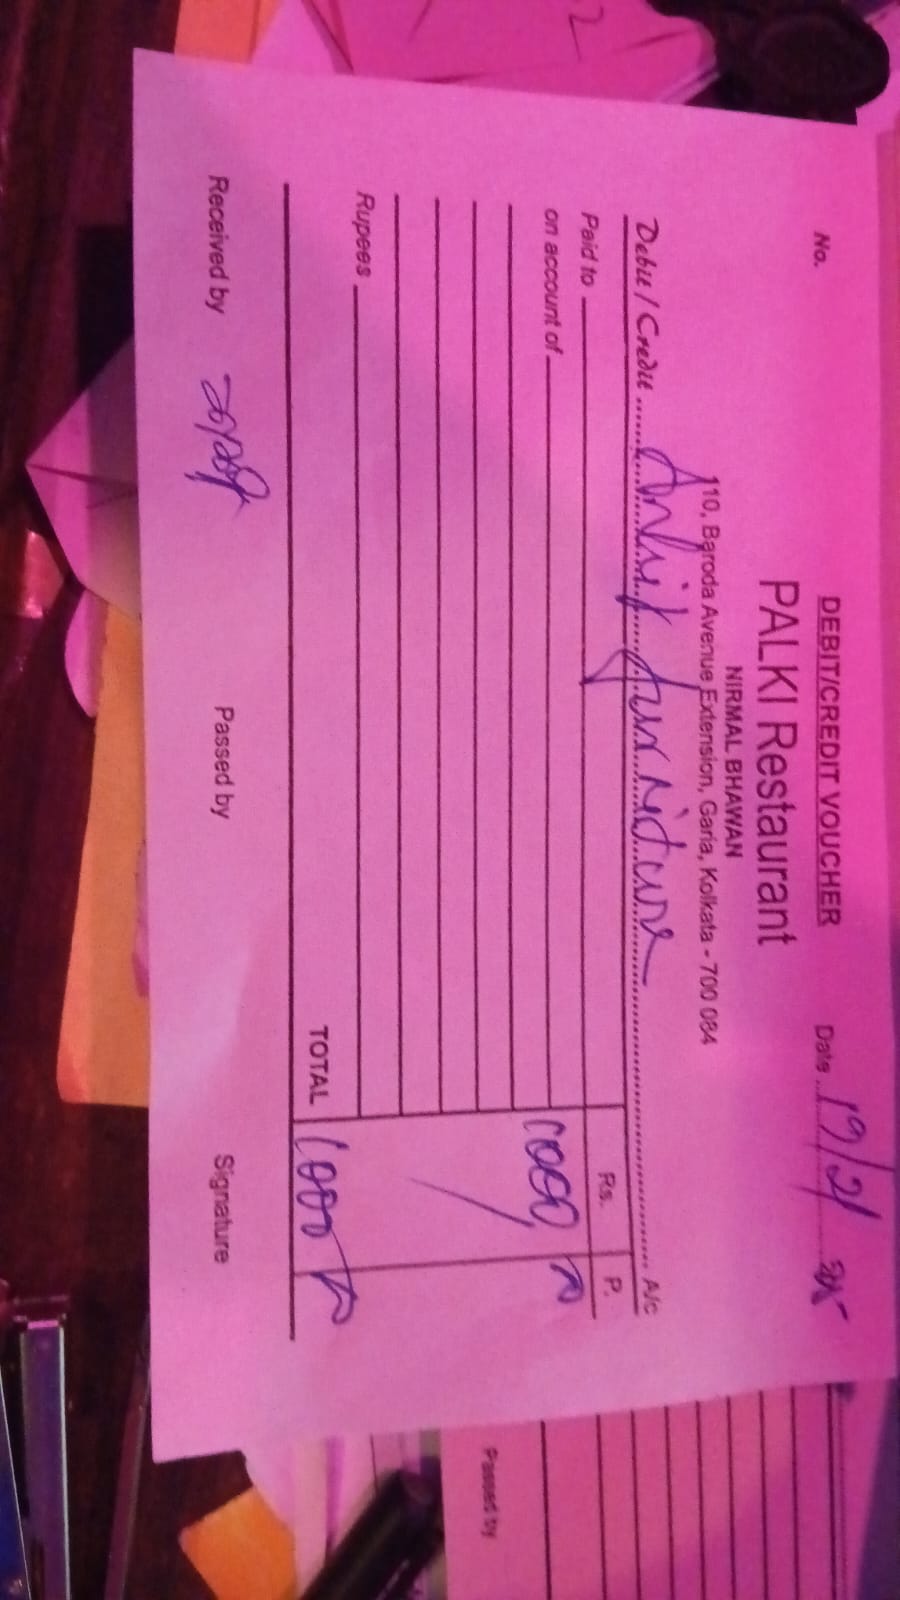 DEBIT/CREDIT VOUCHER
No.
Date 19/2/25
PALKI Restaurant
NIRMAL BHAWAN
110, Baroda Avenue Extension, Garia, Kolkata - 700 084
Debit / Credit furniture A/c
Paid to
Rs. P.
on account of 1000
Rupees
TOTAL 1000
Received by
Passed by
Signature
Passed by
2